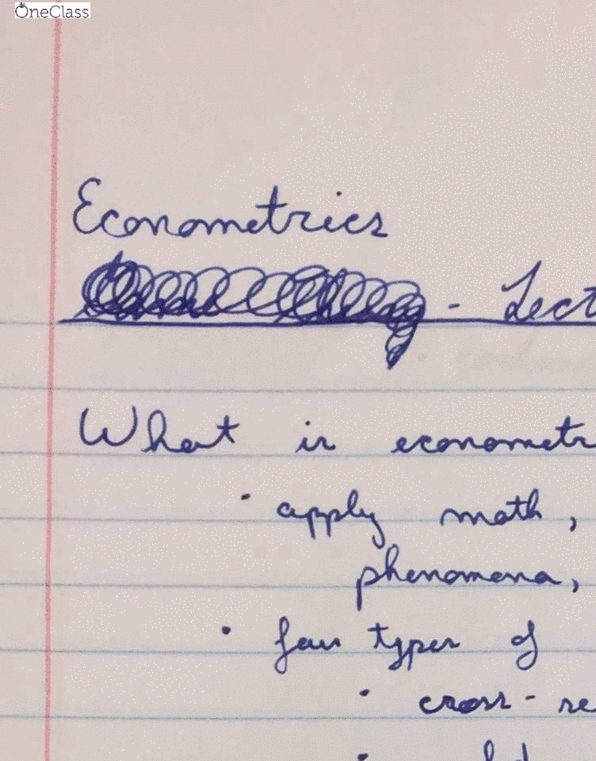 OneClass
Econometrics
- Lect
What is econometr
• apply math,
phenomena,
• few types of
• cross-se